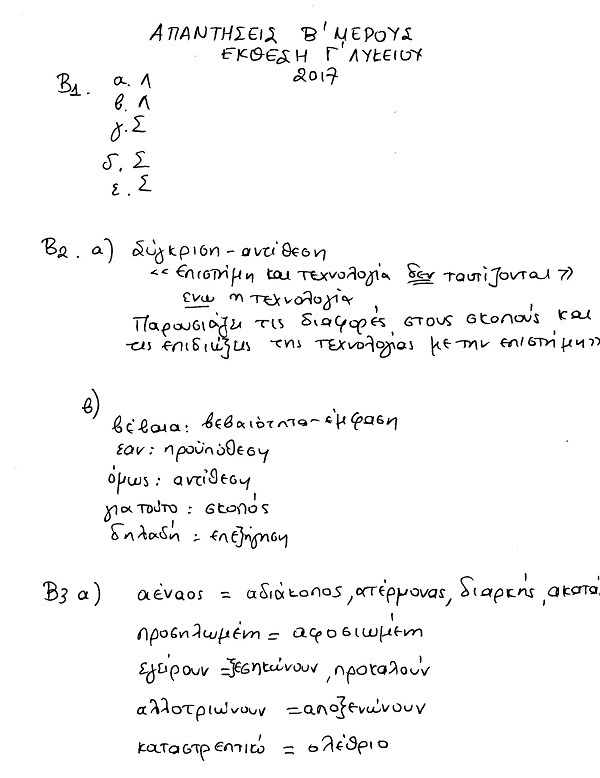 ΑΠΑΝΤΗΣΕΙΣ Β' ΜΕΡΟΥΣ
ΕΚΘΕΣΗ Γ' ΛΥΚΕΙΟΥ
2017
Β1. α. Λ
β. Λ
γ. Σ
δ. Σ
ε. Σ
Β2. α) Σύγκριση - αντίθεση
<< επιστήμη και τεχνολογία δεν ταυτίζονται >>
ενω η τεχνολογία
Παρουσιάζει τις διαφορές, στους σκοπούς και
τις επιδιώξεις της τεχνολογίας με την επιστήμη >>
β)
βέβαια: βεβαιότητα - έμφαση
εαν: προϋπόθεση
όμως: αντίθεση
για τούτο: σκοπός
δηλαδή = επεξήγηση
Β3 α) αέναος = αδιάκοπος, ατέρμονας, διαρκής, ακατά
προσηλωμένη = αφοσιωμένη
εγείρουν = ξεσηκώνουν, προκαλούν
αλλοτριώνουν = αποξενώνουν
καταστρεπτικό = ολέθριο